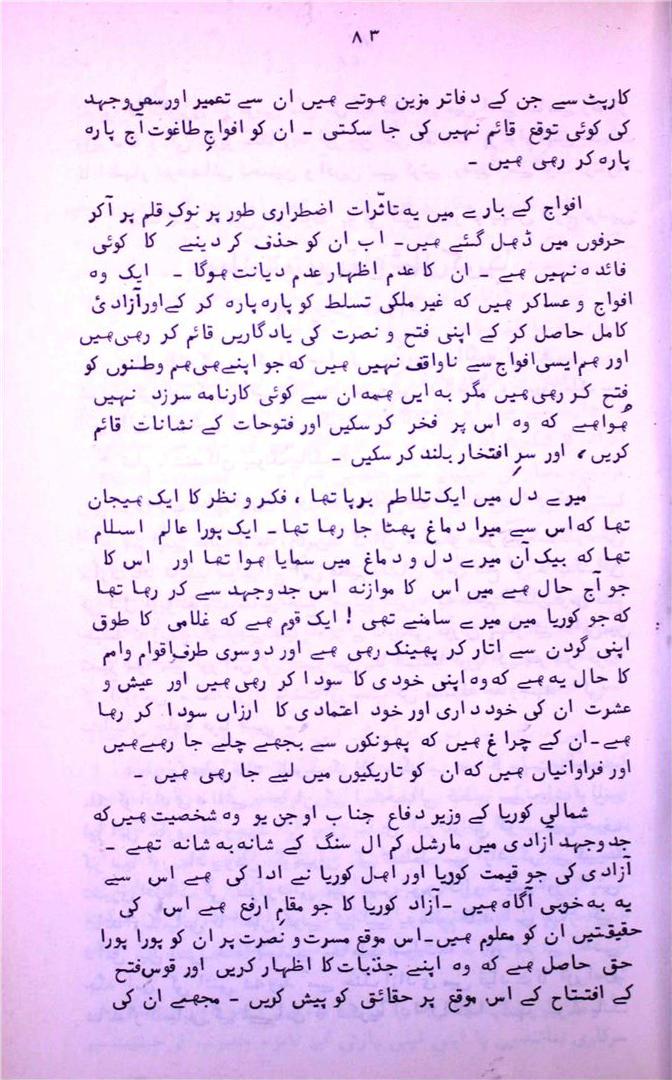 ۸۳
کارپٹ سے جن کے دفاتر مزین ہوتے ہیں ان سے تعمیر اور سعی وجہد
کی کوئی توقع قائم نہیں کی جا سکتی ۔ ان کو افواجِ طاغوت آج پارہ
پارہ کر رہی ہیں ۔
افواج کے بارے میں یہ تاثّرات اضطراری طور پر نوکِ قلم پر آکر
حرفوں میں ڈھل گئے ہیں۔ اب ان کو حذف کر دینے کا کوئی
فائدہ نہیں ہے ۔ ان کا عدم اظہار عدم دیانت ہوگا ۔ ایک وہ
افواج و عساکر ہیں کہ غیر ملکی تسلط کو پارہ پارہ کر کے اور آزادیٔ
کامل حاصل کر کے اپنی فتح و نصرت کی یادگاریں قائم کر رہی ہیں
اور ہم ایسی افواج سے ناواقف نہیں ہیں کہ جو اپنے ہی ہم وطنوں کو
فتح کر رہی ہیں مگر بہ ایں ہمہ ان سے کوئی کارنامہ سرزد نہیں
ہُوا ہے کہ وہ اس پر فخر کر سکیں اور فتوحات کے نشانات قائم
کریں، اور سرِ افتخار بلند کر سکیں ۔
میرے دل میں ایک تلاطم برپا تھا ، فکر و نظر کا ایک ہیجان
تھا کہ اس سے میرا دماغ پھٹا جا رہا تھا۔ ایک پورا عالم اسلام
تھا کہ بیک آن میرے دل و دماغ میں سمایا ہوا تھا اور اس کا
جو آج حال ہے میں اس کا موازنہ اس جدوجہد سے کر رہا تھا
کہ جو کوریا میں میرے سامنے تھی ! ایک قوم ہے کہ غلامی کا طوق
اپنی گردن سے اتار کر پھینک رہی ہے اور دوسری طرف اقوام وامم
کا حال یہ ہے کہ وہ اپنی خودی کا سودا کر رہی ہیں اور عیش و
عشرت ان کی خودداری اور خود اعتمادی کا ارزاں سودا کر رہا
ہے۔ ان کے چراغ ہیں کہ پھونکوں سے بجھے چلے جا رہے ہیں
اور فراوانیاں ہیں کہ ان کو تاریکیوں میں لیے جا رہی ہیں ۔
شمالی کوریا کے وزیر دفاع جناب اوجن یو وہ شخصیت ہیں کہ
جدوجہد آزادی میں مارشل کم ال سنگ کے شانہ بہ شانہ تھے ۔
آزادی کی جو قیمت کوریا اور اہل کوریا نے ادا کی ہے اس سے
یہ بہ خوبی آگاہ ہیں ۔ آزاد کوریا کا جو مقامِ ارفع ہے اس کی
حقیقتیں ان کو معلوم ہیں۔ اس موقع مسرت و نصرت پر ان کو پورا پورا
حق حاصل ہے کہ وہ اپنے جذبات کا اظہار کریں اور قوسِ فتح
کے افتتاح کے اس موقع پر حقائق کو پیش کریں ۔ مجھے ان کی